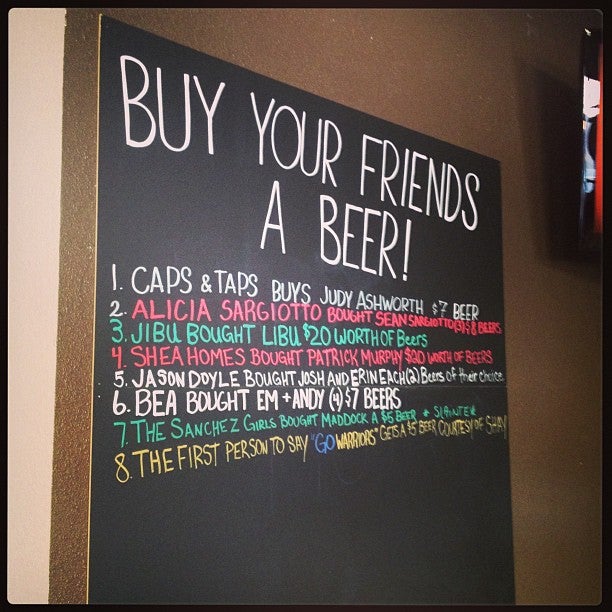 BUY YOUR FRIENDS
A BEER!
1. CAPS & TAPS BUYS JUDY ASHWORTH $7 BEER
2. ALICIA SARGIOTTO BOUGHT SEAN SARGIOTTO (3) $8 BEERS
3. JIBU BOUGHT LIBU $20 WORTH OF Beers
4. SHEA HOMES BOUGHT PATRICK MURPHY $20 WORTH OF BEERS
5. JASON DOYLE BOUGHT JOSH AND ERIN EACH (2) Beers of their choice
6. BEA BOUGHT EM + ANDY (4) $7 BEERS
7. THE SANCHEZ GIRLS BOUGHT MADDOCK A $5 BEER + SLAINTE
8. THE FIRST PERSON TO SAY "GO WARRIORS" GETS A $5 BEER COURTESY OF SHAY